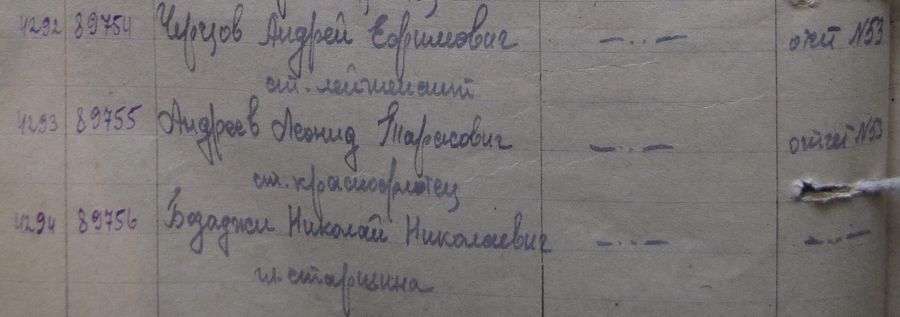 4292 89754 Черцов Андрей Ефимович —..— отчет N53
ст. лейтенант
4293 89755 Андреев Леонид Тарасович —..— отчет N53
ст. краснофлотец
4294 89756 Бозаджи Николай Николаевич —..— —..—
гл. старшина